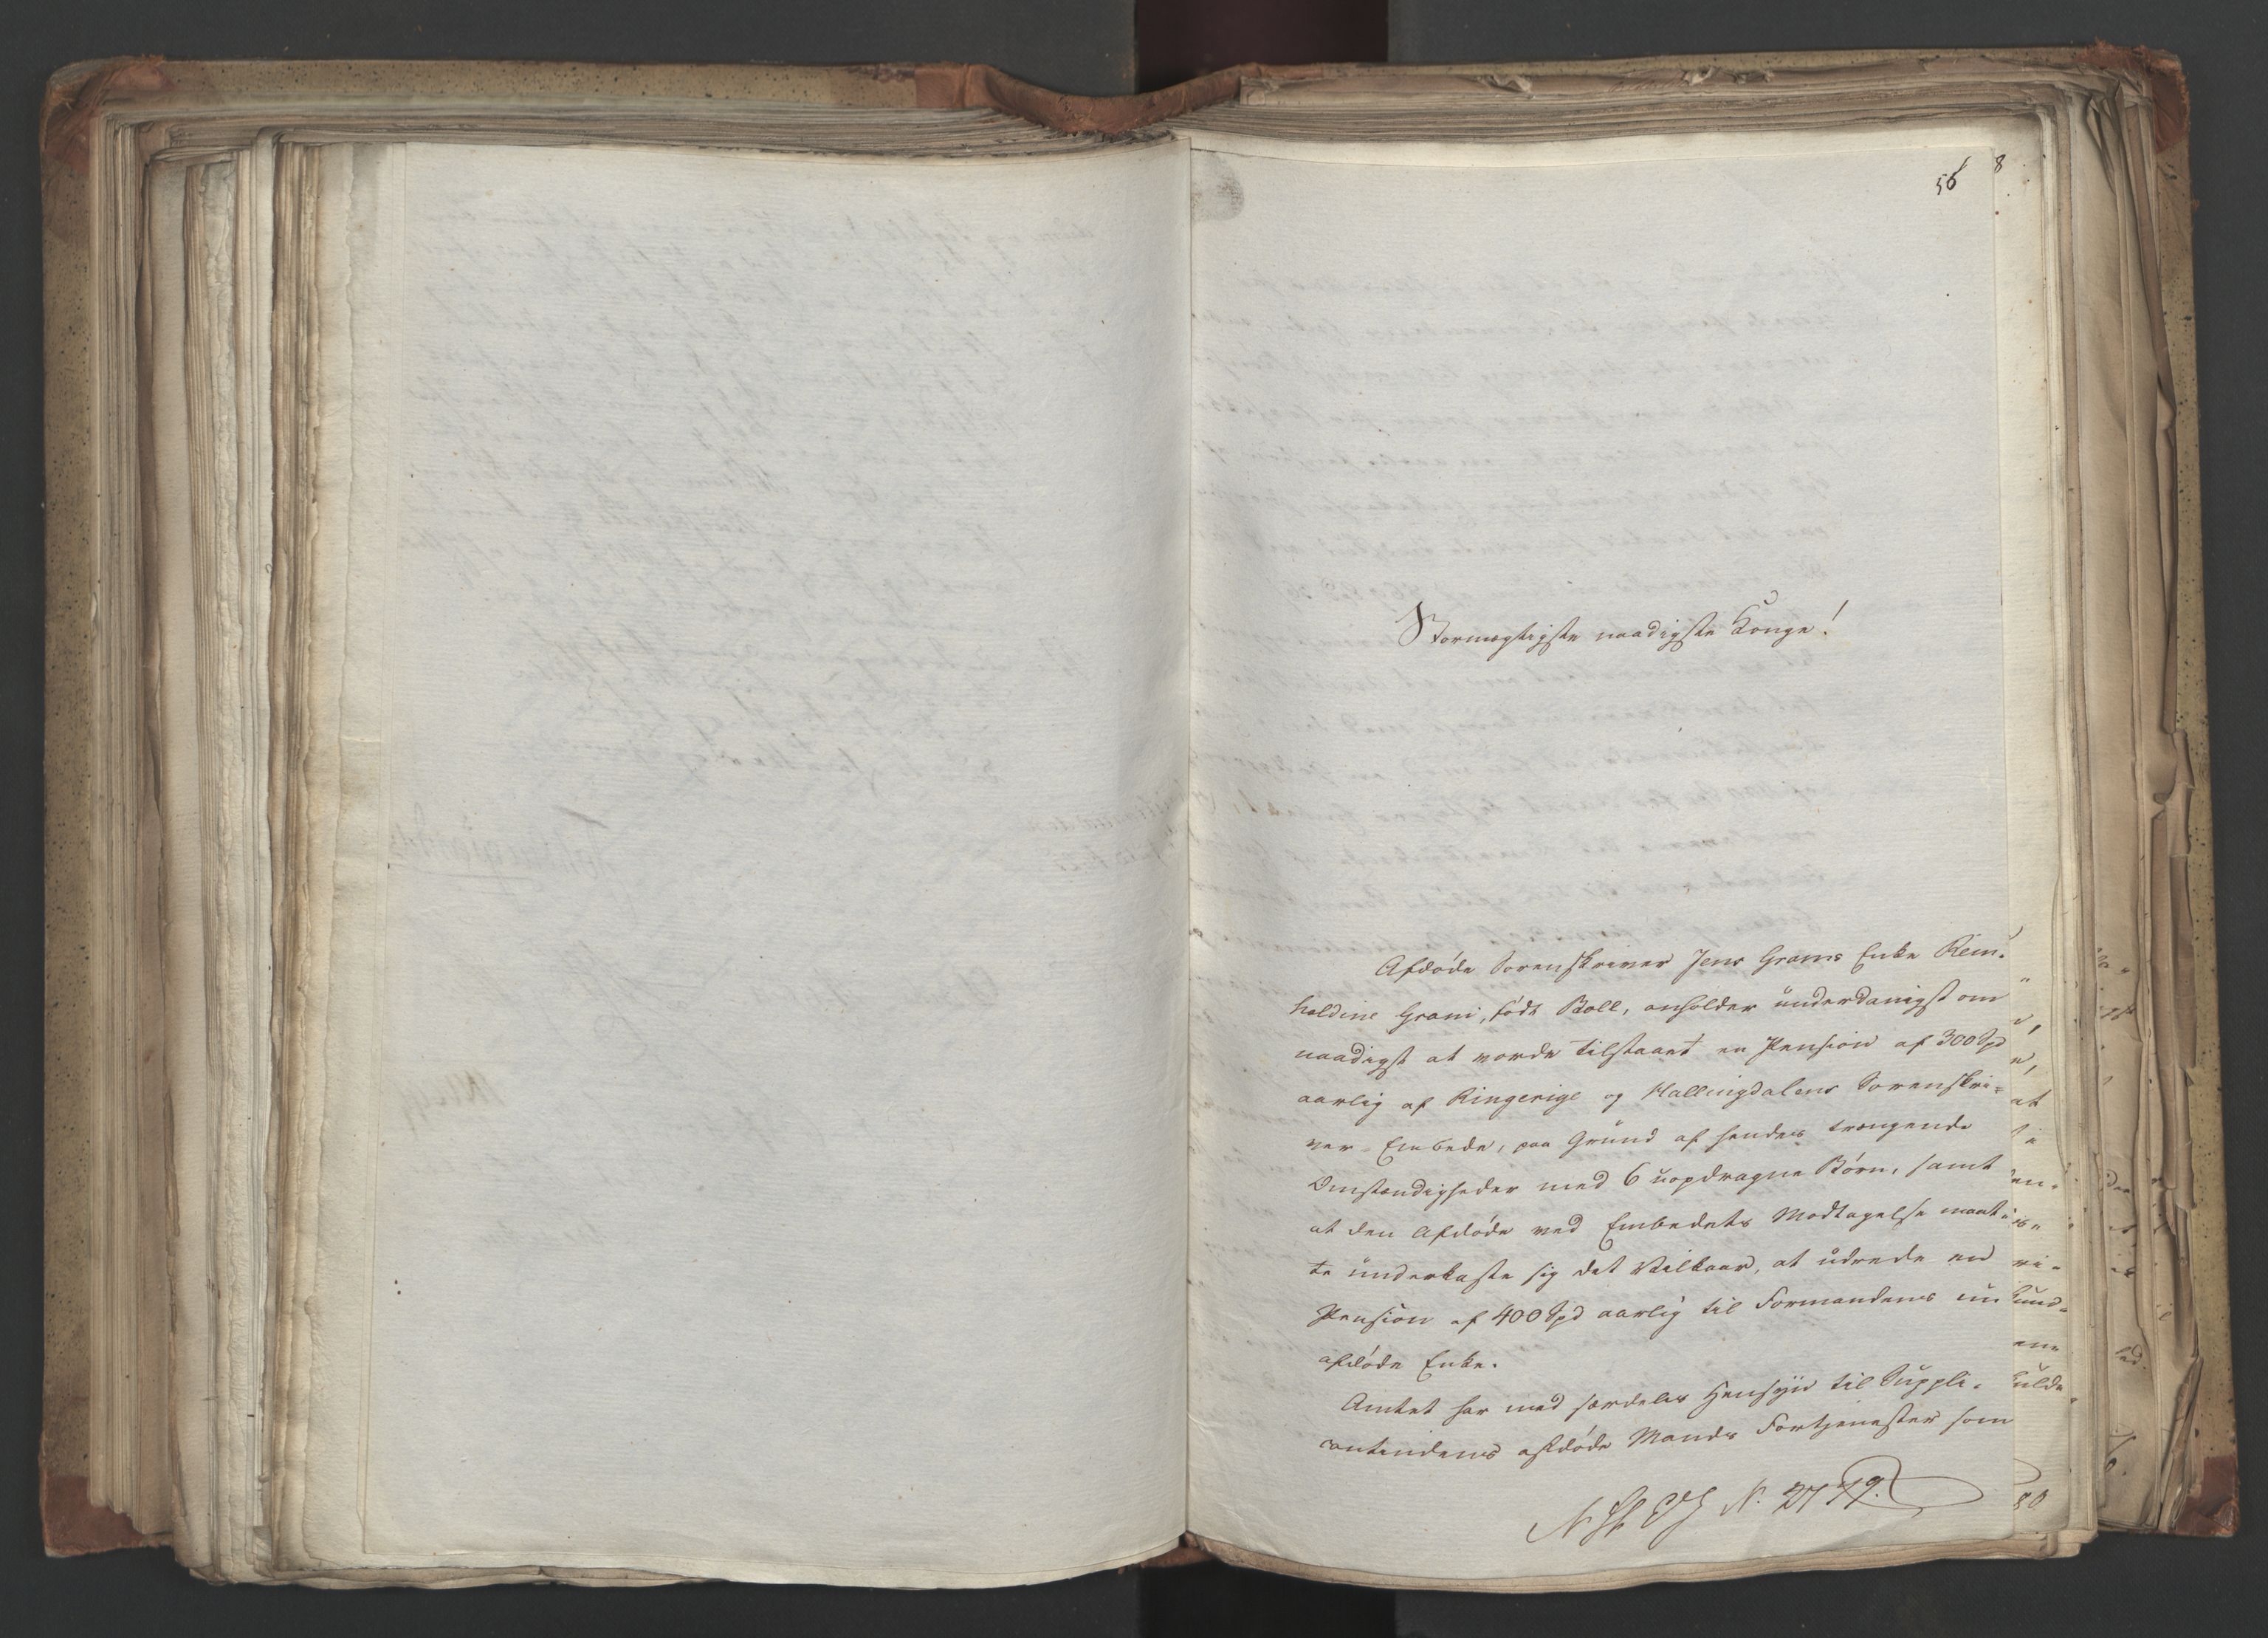 56
8
Stormægtigste naadigste Konge!
Afdøde Sorenskriver Jens Grams Enke Rein-
holdine Gram, født Boll, anholder underdanigst om
naadigst at vorde tilstaaet en Pension af 300 Spd
aarlig af Ringerige og Hallingdalens Sorenskri=
ver-Embede, paa Grund af hendes trængende
Omstændigheder med 6 uopdragne Børn, samt
at den Afdøde ved Embedets Modtagelse maat-
te underkaste sig det Vilkaar, at udrede en
Pension af 400 Spd aarlig til Formandens nu
afdøde Enke.
Amtet har med særdeles Hensyn til Suppli-
cantindens afdøde Mands Fortjenester som